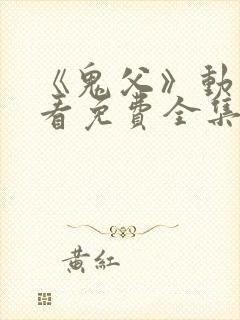 《鬼父》動
看免費全集
黃紅